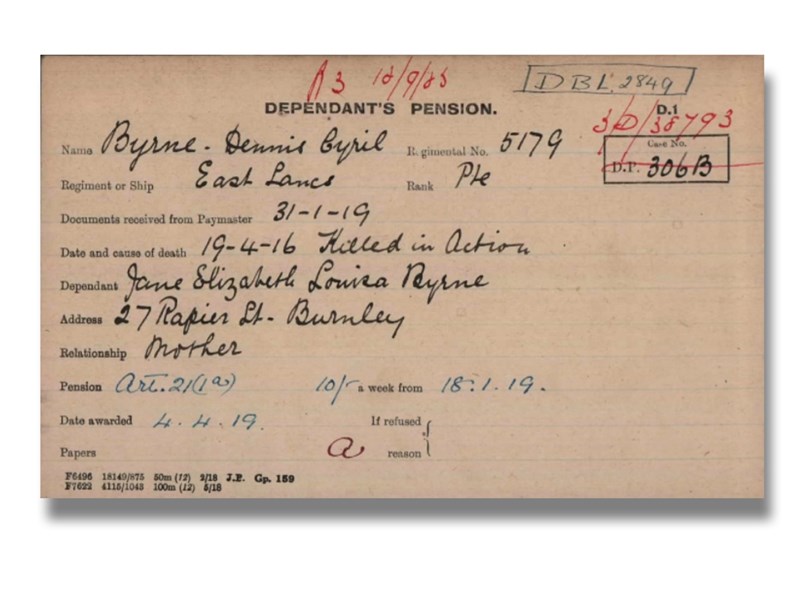 A3 18/9/85
DBL 2849
DEPENDANT'S PENSION.
D.1
3/D/38793
Name Byrne - Dennis Cyril Regimental No. 5179
Case No.
D.P. 306B
Regiment or Ship East Lancs Rank Pte
Documents received from Paymaster 31-1-19
Date and cause of death 19-4-16 Killed in Action
Dependant Jane Elizabeth Louisa Byrne
Address 27 Rapier St - Burnley
Relationship Mother
Pension Art. 21(1a) 10/- a week from 18.1.19.
Date awarded 4.4.19. If refused
Papers a reason
F6496 18149/875 50m (12) 2/18 J.P. Gp. 159
F7622 4115/1043 100m (12) 5/18